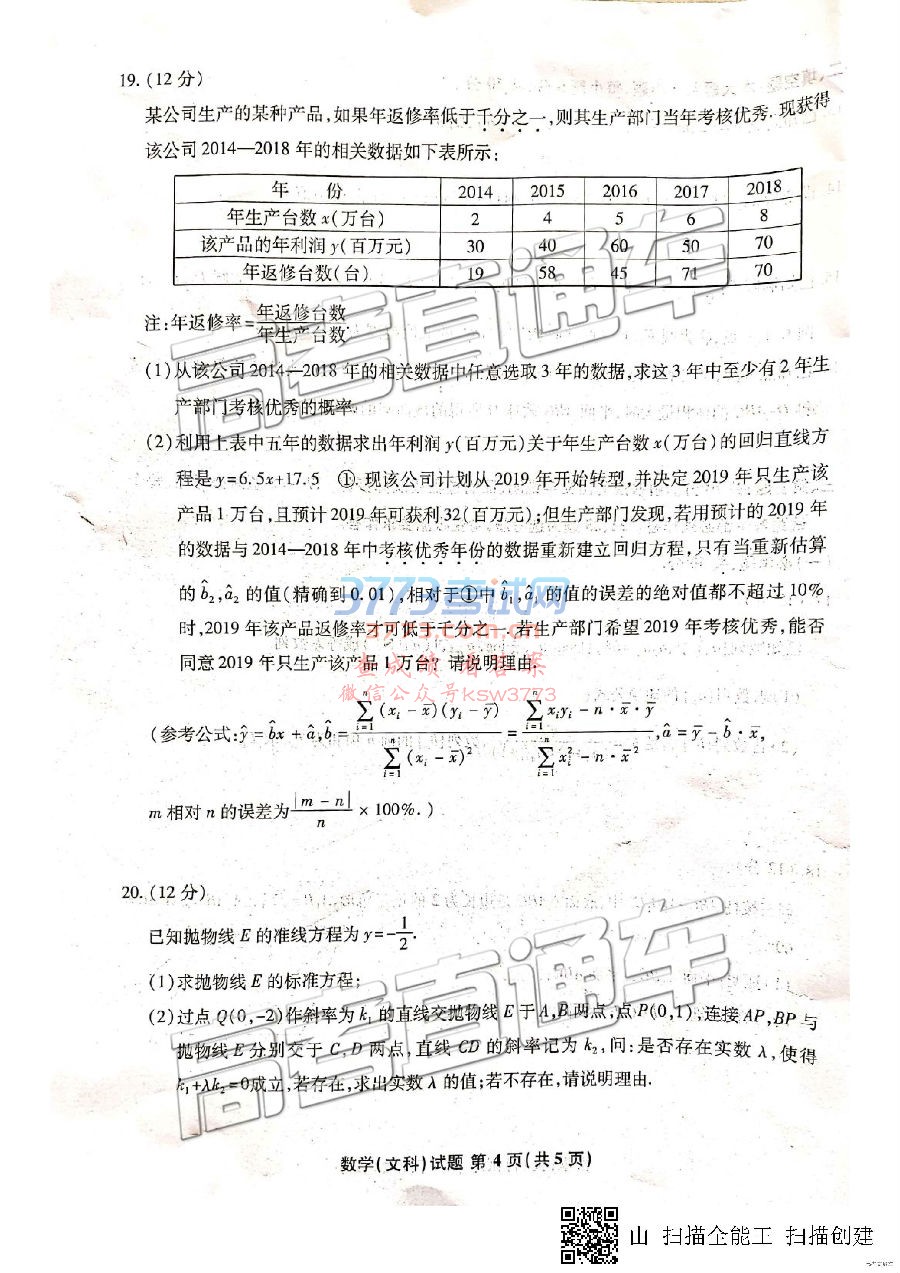 19. (12 分)
某公司生产的某种产品,如果年返修率低于千分之一,则其生产部门当年考核优秀. 现获得
该公司 2014—2018 年的相关数据如下表所示:
年 份 2014 2015 2016 2017 2018
年生产台数 x(万台) 2 4 5 6 8
该产品的年利润 y(百万元) 30 40 60 50 70
年返修台数(台) 19 58 45 71 70
注:年返修率=年返修台数/年生产台数.
(1)从该公司 2014—2018 年的相关数据中任意选取 3 年的数据,求这 3 年中至少有 2 年生
产部门考核优秀的概率.
(2)利用上表中五年的数据求出年利润 y(百万元)关于年生产台数 x(万台)的回归直线方
程是 y=6.5x+17.5 ①.现该公司计划从 2019 年开始转型,并决定 2019 年只生产该
产品 1 万台,且预计 2019 年可获利 32(百万元);但生产部门发现,若用预计的 2019 年
的数据与 2014—2018 年中考核优秀年份的数据重新建立回归方程,只有当重新估算
的 b̂₂,â₂ 的值(精确到 0.01),相对于①中 b̂₁,â₁ 的值的误差的绝对值都不超过 10%
时,2019 年该产品返修率才可低于千分之一.若生产部门希望 2019 年考核优秀,能否
同意 2019 年只生产该产品 1 万台?请说明理由.
(参考公式:ŷ = b̂x + â, b̂ = ∑(i=1→n)(xᵢ - x̄)(yᵢ - ȳ) / ∑(i=1→n)(xᵢ - x̄)² = (∑(i=1→n)xᵢyᵢ - n·x̄·ȳ) / (∑(i=1→n)xᵢ² - n·x̄²), â = ȳ - b̂·x̄,
m 相对 n 的误差为 |m - n|/n × 100%.)
20. (12 分)
已知抛物线 E 的准线方程为 y=-1/2.
(1)求抛物线 E 的标准方程;
(2)过点 Q(0,-2)作斜率为 k₁ 的直线交抛物线 E 于 A,B 两点,点 P(0,1),连接 AP,BP 与
抛物线 E 分别交于 C,D 两点,直线 CD 的斜率记为 k₂,问:是否存在实数 λ,使得
k₁+λk₂=0成立,若存在,求出实数 λ 的值;若不存在,请说明理由.
数学(文科)试题 第 4 页(共 5 页)
高考直通车
高考直通车
3773考试网
3773.com.cn
查成绩 请答案
微信公众号ksw3773
山 扫描全能工 扫描创建